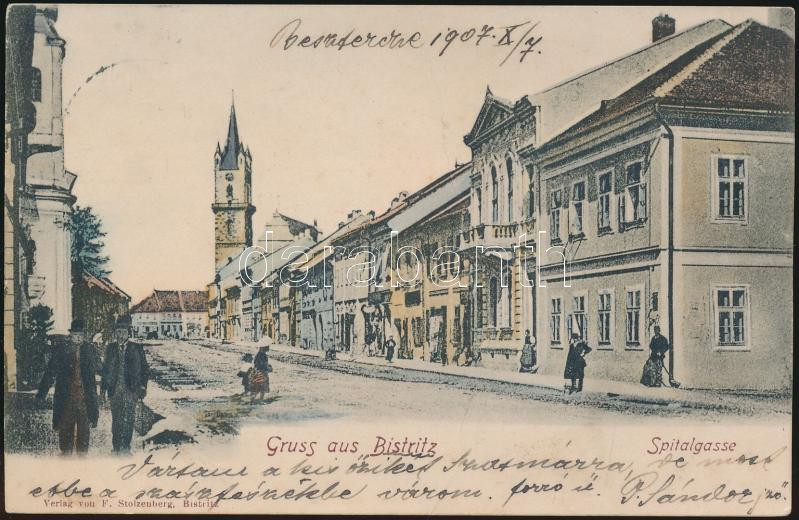 Beszterce 1907. X/7.
darabanth.com
Gruss aus Bistritz
Spitalgasse
Vártam a kis őzikét Szatmárra, de most
ebbe a szászfészekbe várom. forró ü. P. Sándor
Verlag von F. Stolzenberg, Bistritz